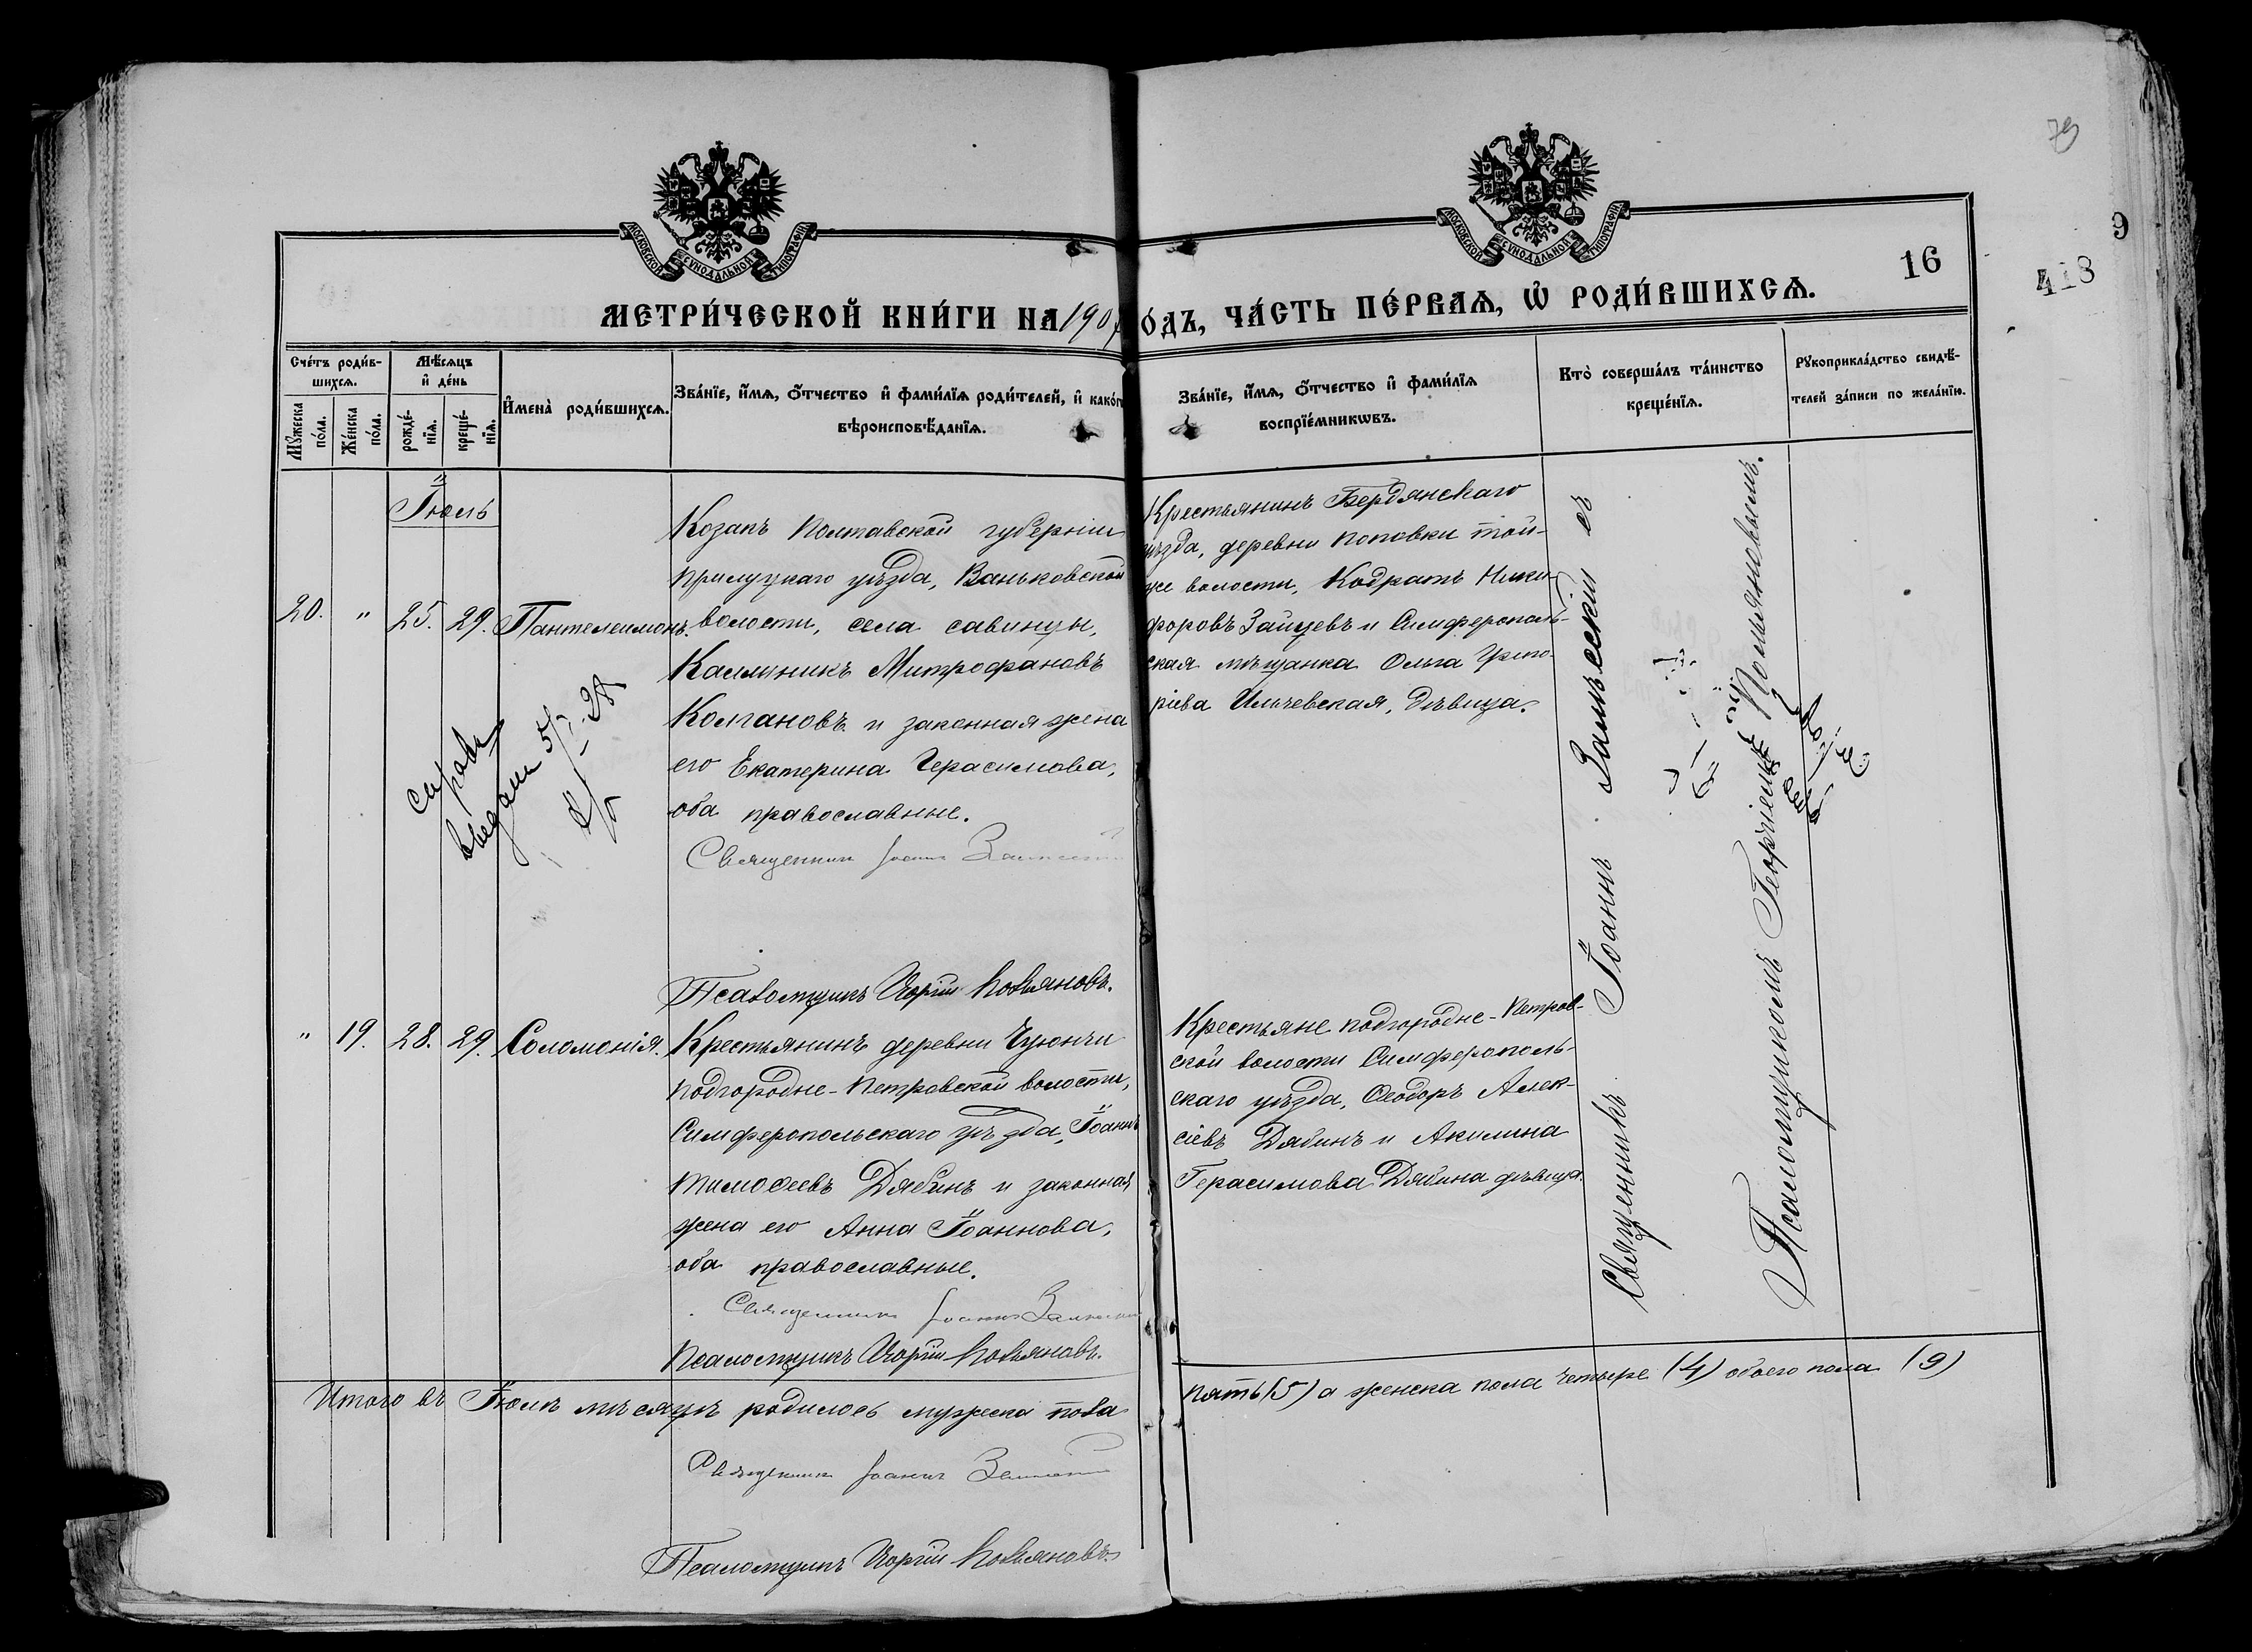 МОСКОВСКОЙ СУНОДАЛЬНОЙ ТИПОГРАФІИ
МОСКОВСКОЙ СУНОДАЛЬНОЙ ТИПОГРАФІИ
79
9
16
418
МЕТРИ́ЧЕСКОЙ КНИ́ГИ НА 190 О́ДЪ, ЧА́СТЬ ПЕ́РВАѦ, Ѡ҆ РОДИ́ВШИХСѦ.
Сче́тъ роди́в-
шихсѧ.
Мѣ́сѧцъ
и҆ де́нь
Мꙋ́жеска по́ла.
Же́нска по́ла.
рожде́-
нїѧ.
креще́-
нїѧ.
И҆мена̀ роди́вшихсѧ.
Зва́нїе, и҆́мѧ, ѻ҆́тчество и҆ фами́лїѧ роди́телей, и҆ како́г
вѣроисповѣ́данїѧ.
Зва́нїе, и҆́мѧ, ѻ҆́тчество и҆ фами́лїѧ
воспрїе́мникѡвъ.
Кто̀ соверша́лъ та́инство
креще́нїѧ.
Рꙋкоприкла́дство свидѣ́-
телей за́писи по жела́нїю.
Іюль
20. " 25. 29. Пантелеимонъ.
Козакъ Полтавской губерніи
Прилуцкаго уѣзда, Ваньковской
волости, села савинцы,
Каллиникъ Митрофановъ
Колпановъ и законная жена
его Екатерина Герасимова,
оба православные.
Священникъ Іоаннъ
Псаломщикъ Георгій
Крестьянинъ Бердянскаго
уѣзда, деревни Поповки той-
же волости, Кодратъ Ники-
форовъ Зайцевъ и Симферополь-
ская мѣщанка Ольга Григо-
ріева Ильчевская, дѣвица.
справ
выдан
" 19. 28. 29. Соломонія.
Крестьянинъ деревни Чуюнчи
Подгородне-Петровской волости,
Симферопольскаго уѣзда, Іоаннъ
Тимоѳеевъ Дябинъ и законная
жена его Анна Іоаннова,
оба православные.
Священникъ Іоаннъ
Псаломщикъ Георгій
Крестьяне подгородне-Петров-
ской волости Симферополь-
скаго уѣзда, Ѳеодоръ Алек-
сіевъ Дябинъ и Акилина
Герасимова Дябина дѣвица.
Священникъ Іоаннъ съ
Псаломщикомъ Георгіемъ
Итого въ Іюлѣ мѣсяцѣ родилось мужеска пола
пять (5) а женска пола четыре (4) обоего пола (9)
Священникъ Іоаннъ
Псаломщикъ Георгій